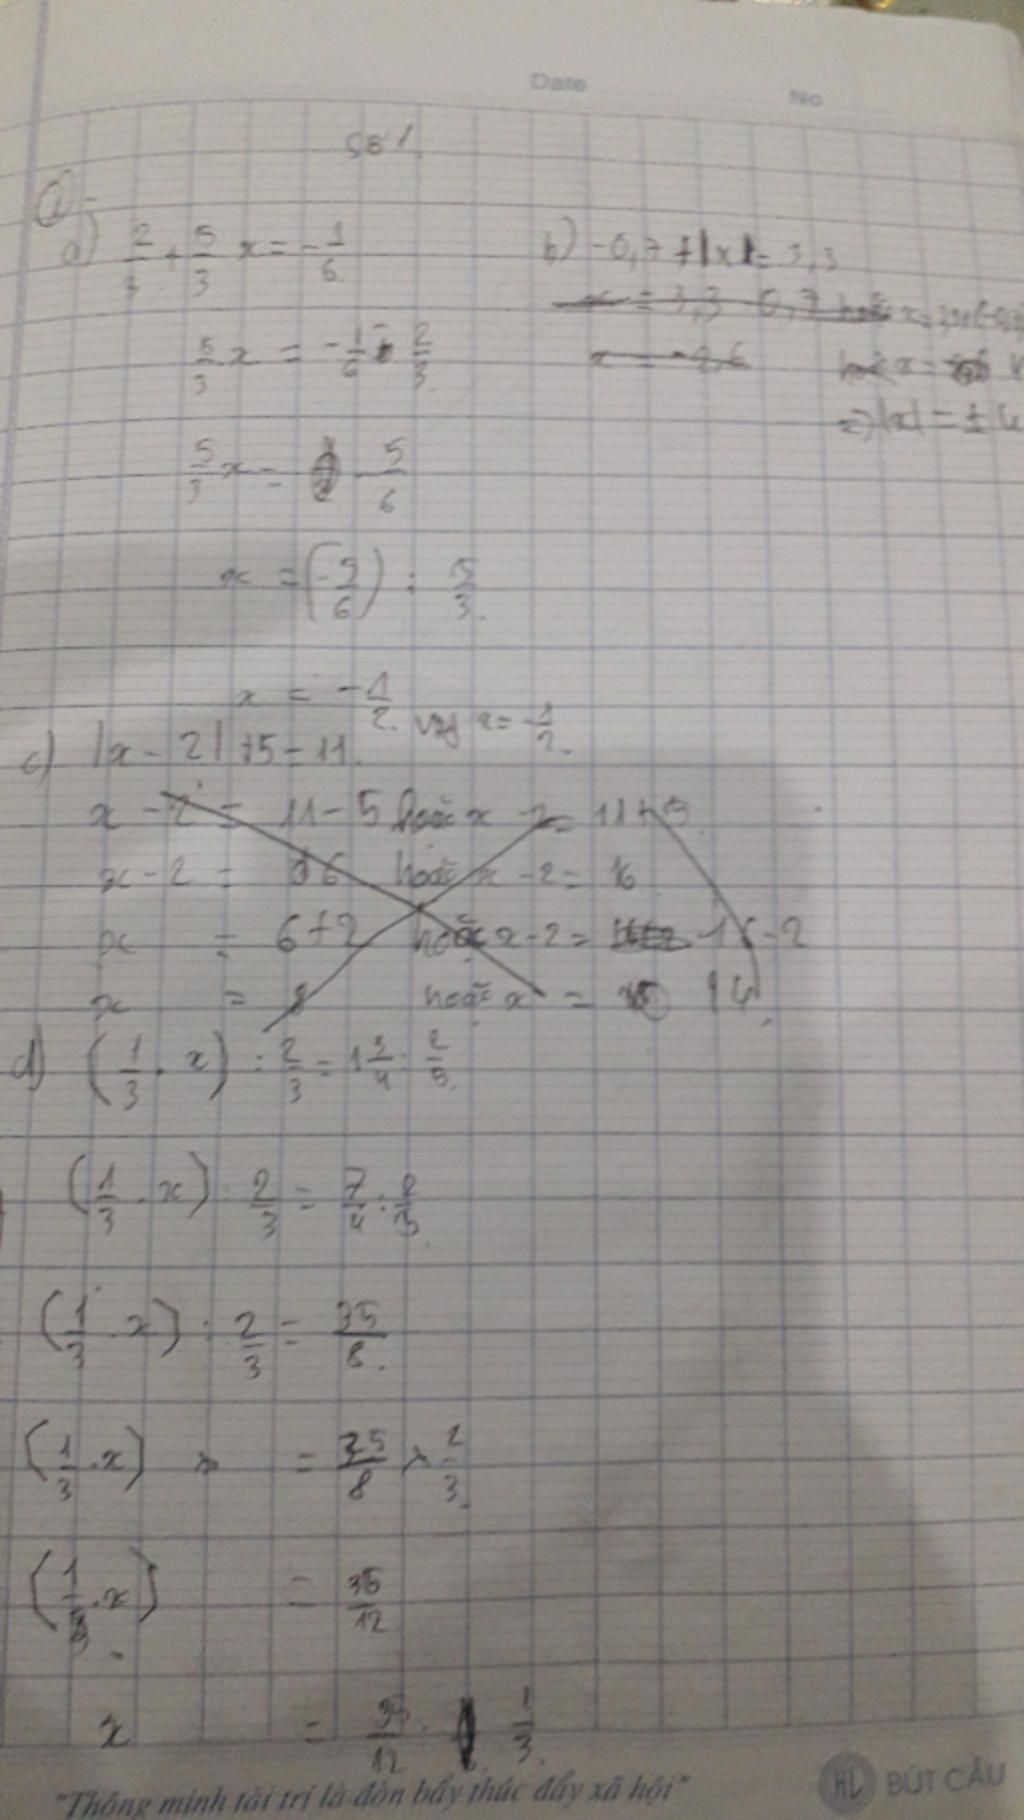 Date No
Số 1
①
a) 2/3 + 5/3 x = -1/6
5/3 x = -1/6 - 2/3
5/3 x = -5/6
x = (-5/6) : 5/3
x = -1/2. Vậy x = -1/2.
b) -0,7 + |x| = 3,3
x = 3,3 - 0,7 hoặc
x = -2,6
hoặc x =
=> |x| = ± 4
c) |x - 2| + 5 = 11
x - 2 = 11 - 5 hoặc x - 2 = 11 + 5
x - 2 = 6 hoặc x - 2 = 16
x = 6 + 2 hoặc x - 2 = 16 - 2
x = 8 hoặc x = 14
d) (1/3 . x) : 2/3 = 1 3/4 : 2/5
(1/3 . x) : 2/3 = 7/4 : 2/5
(1/3 . x) : 2/3 = 35/8
(1/3 . x) = 35/8 x 2/3
(1/3 . x) = 35/12
x = 35/12 : 1/3
"Thông minh tài trí là đòn bẩy thúc đẩy xã hội"
HL BÚT CÂU